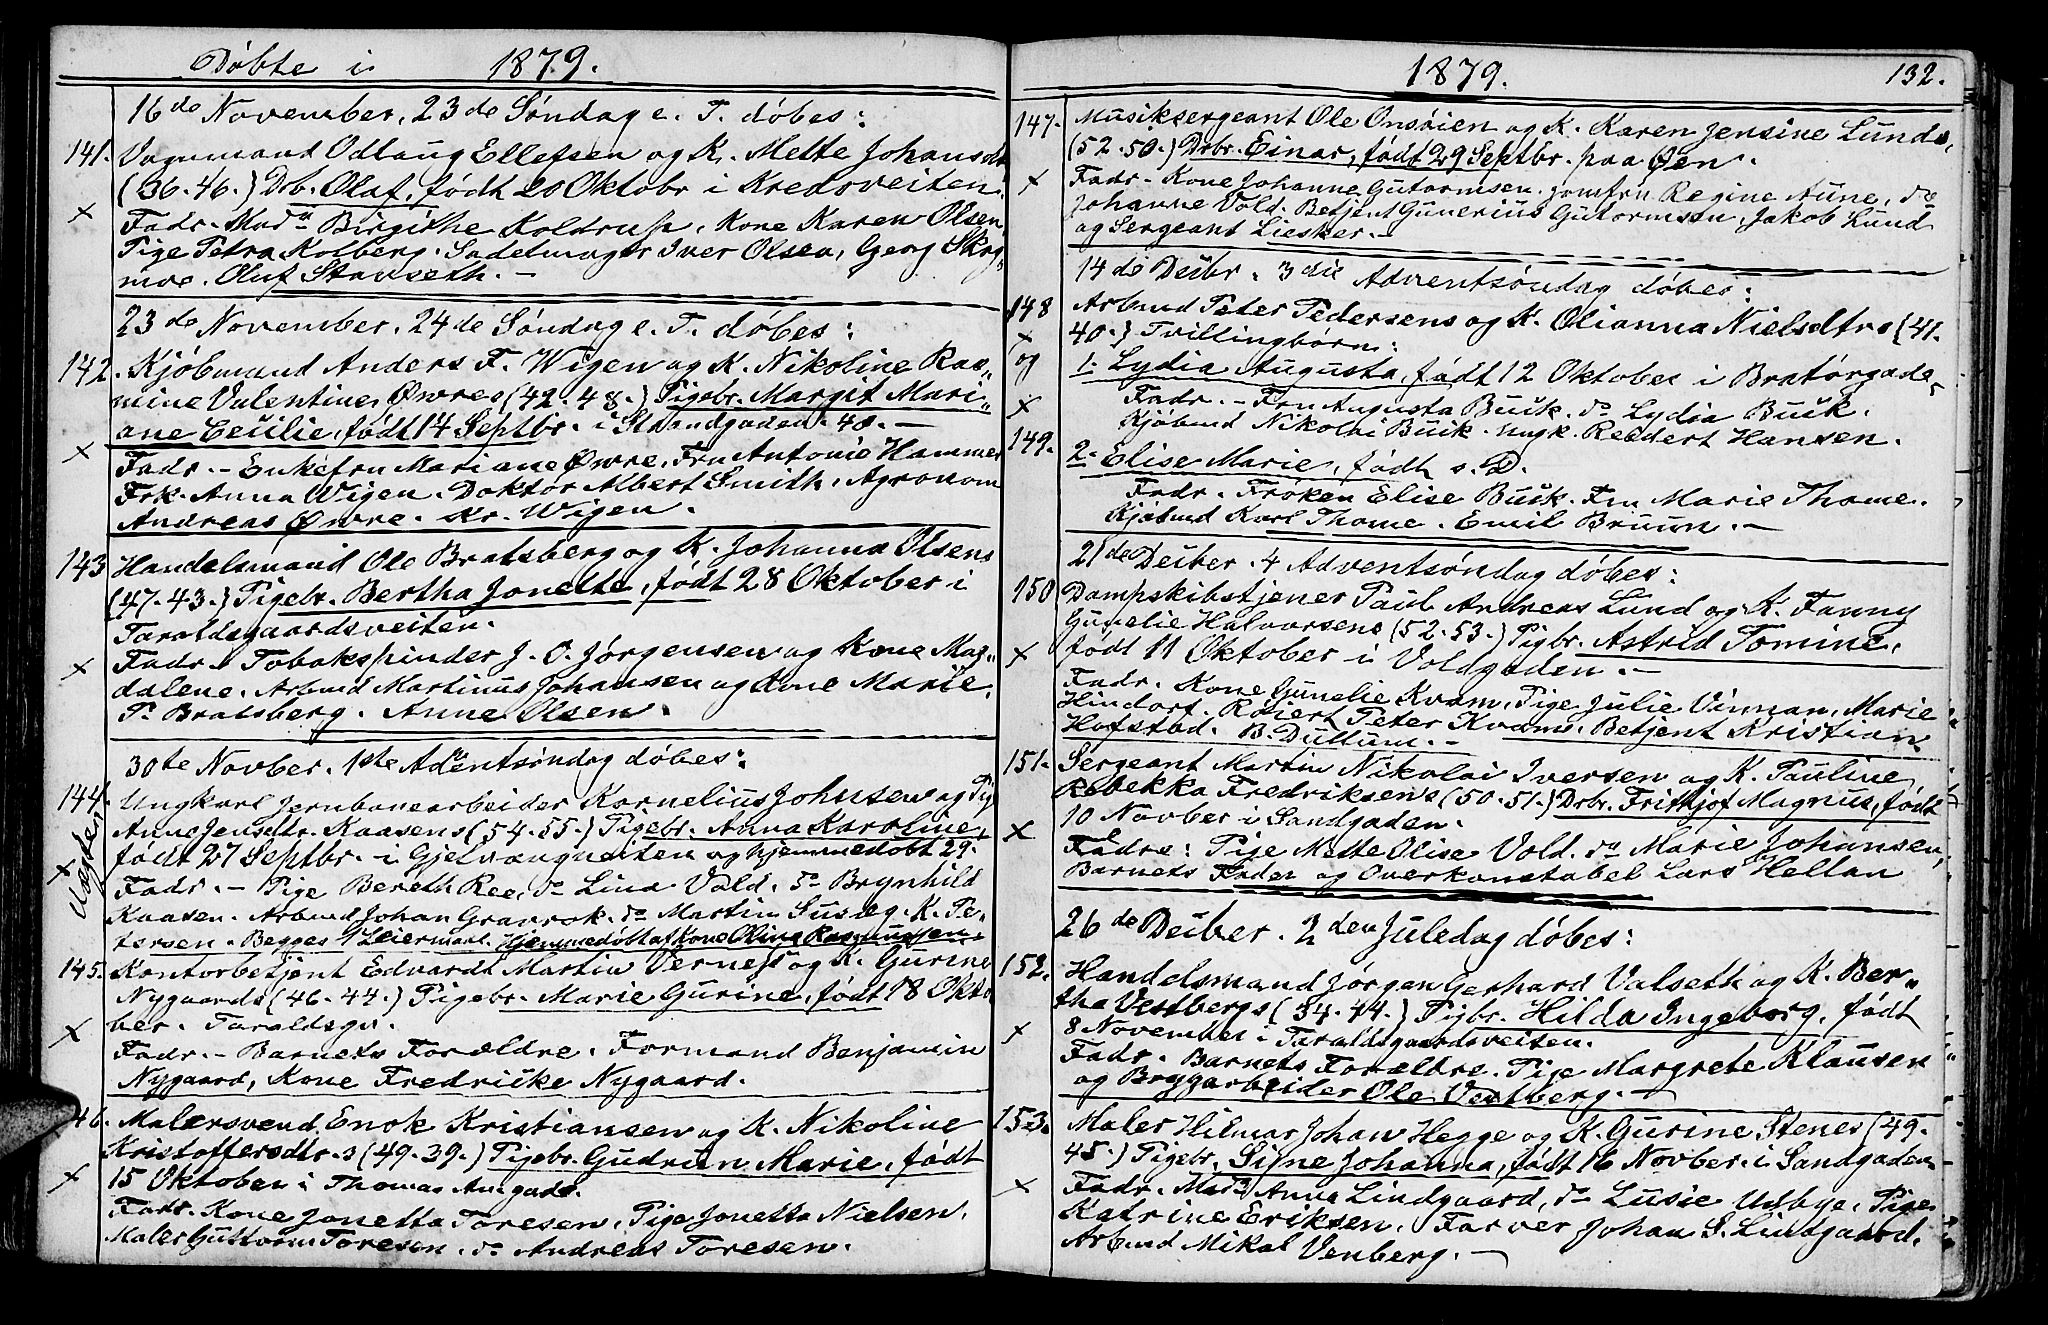 Døbte i 1879.
16de November, 23de Søndag e. T. døbes:
141. Vognmand Odlaug Ellefsen og K. Mette Johansdt
(36.46.) Drb. Olaf, født 20 Oktobr i Kredoveiten.
Fadr. Mad. Birgithe Koldrup, Kone Karen Olsen,
Pige Petra Kolberg. Sadelmager Iver Olsen, Georg Skog„
moe. Oluf Stavseth. —
23de November, 24de Søndag e. T. døbes:
142. Kjøbmand Anders F. Wigen og K. Nikoline Ras„
mine Valentine Øwres (42.48.) Pigebr. Margit Mari„
ane Cecilie, født 14 Septbr. i Strandgaden 40. —
Fadr. — Enkefru Mariane Øwre, Fru Antonie Hammer
Frk. Anna Wigen. Doktor Albert Smith, Agronom
Andreas Øwre. Kr. Wigen.
143 Handelsmand Ole Bratsberg og K. Johanna Olsens
(47.43.) Pigebr. Bertha Jonette, født 28 Oktober i
Taraldsgaardsveiten.
Fadr. Tobakspinder J. O. Jørgensen og Kone Mag„
dalene. Arbmd Martinus Johansen og Kone Marie.
P. Bratsberg. Anne Olsen.
30te Novber. 1ste Adventsøndag døbes:
144. Ungkarl Jernbanearbeider Kornelius Johnsen og Pig
Anne Jensdtr. Kaasens (54.55.) Pigebr. Anna Karoline,
født 27 Septbr. i Gjelvangveiten og hjemmedøbt 29.
Fadr. — Pige Bereth Ree, do Lina Vold. do Brynhild
Kaasen. Arbmd Johan Granrok. do Martin Susæg. K. Pe„
tersen. Begges 1 Leiermaal. Hjemmedøbt af Kone Oline Rasmussen.
145. Kontorbetjent Edvardt Martin Vernes og K. Gurine
Nygaards (46.44.) Pigebr. Marie Gurine, født 18 Okto
ber. Taraldsgv.
Fadr. — Barnets Forældre. Formand Benjamin
Nygaard, Kone Fredrikke Nygaard.
46. Malersvend Enok Kristiansen og K. Nikoline
Kristoffersdtr.s (49.39.) Pigebr. Gudrun Marie, født
15 Oktober i Thomas Angade.
Fadr. Kone Jonetta Toresen, Pige Jonetta Nielsen,
Maler Guttorm Toresen. do Andreas Toresen.
1879. 132.
147. Musiksergeant Ole Onsøien og K. Karen Jensine Lunds,
(52.50.) Drbr. Einar, født 29 Septbr. paa Øen.
Fadr. Kone Johanne Gutormsen, Jomfru Regine Aune, do
Johanne Vold. Betjent Gunerius Gutormsen, Jakob Lund
og Sergeant Liesker. —
14de Decbr. 3die Adventsøndag døbes:
148 Arbmd Peter Pedersens og K. Olianna Nielsdtrs (41.
40.) Tvillingbørn:
og 1. Lydia Augusta, født 12 Oktober i Bratørgade„
Fadr. — Fru Augusta Buck. do Lydia Buck.
Kjøbmd Nikolai Buck. Ungk. Reedert Hansen.
149. 2. Elise Marie, født s. D.
Fadr. Frøken Elise Buck. Fru Marie Thome.
Kjøbmd Karl Thome. Emil Bruun. —
21de Decber. 4 Adventsøndag døbes:
150 Dampskibstjener Paul Andreas Lund og K. Fanny
Gunelie Halvorsens (52.53.) Pigbr. Astrid Tomine,
født 11 Oktober i Voldgaden. —
Fadr. Kone Gunelie Kvam, Pige Julie Vinnan, Marie
Hindort. Peter Kvam. Betjent Kristian
Hofstad. B. Dullum. —
151. Sergeant Martin Nikolai Iversen og K. Pauline
Rebekka Fredriksens (50.51.) Drbr. Frithjof Magnus, født
10 Novber i Sandgaden.
Faddre: Pige Mette Olise Vold. do Marie Johansen,
Barnets Fader og Overkonstabel Lars Hellan
26de Decber. 2den Juledag døbes:
152. Handelsmand Jørgen Gerhard Valseth og K. Ber„
tha Vestbergs (34.44.) Pigbr. Hilda Ingeborg, født
8 November i Taraldsgaardsveiten.
Fadr. Barnets Forældre. Pige Margrete Klausen
og Brygarbeider Ole Vestberg. —
153. Maler Hilmar Johan Hegge og K. Gurine Stenes (49.
45.) Pigebr. Signe Johanna, født 16 Novber. i Sandgaden
Fadr. Mad. Anna Lindgaard, do Lusie Udbye. Pige
Katrine Eriksen. Farver Johan S. Lindgaard.
Arbmd Mikal Venberg. —